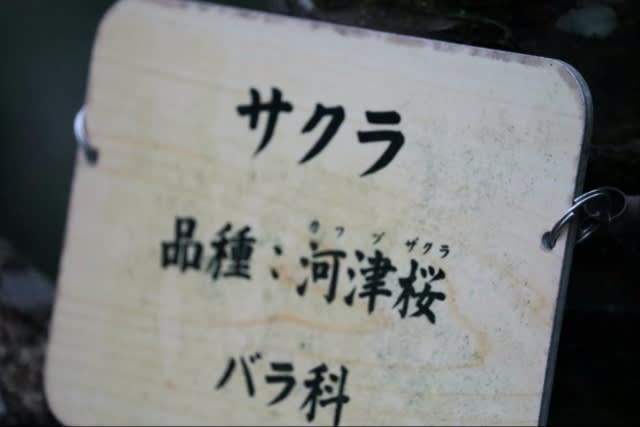 サクラ
カワヅザクラ
品種：河津桜
バラ科